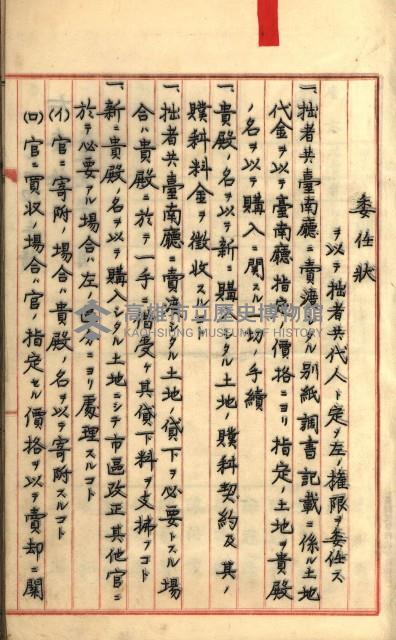 委任状
ヲ以テ拙者共代人ト定メ左ノ権限ヲ委任ス
一、拙者共臺南廳ニ賣渡 ル別紙調書記載ニ係ル土地
代金ヲ以テ臺南廳指定ノ價格ニヨリ指定ノ土地ヲ貴殿
ノ名ヲ以テ購入ニ関スル 切ノ手續
一、貴殿ノ名ヲ以テ新ニ購 タル土地ノ贌耕契約及其ノ
贌耕料金ヲ徴収ス
一、拙者共臺南廳ニ賣渡 タル土地ノ貸下ヲ必要トスル場
合ハ貴殿ニ於テ一手 借受ケ其貸下料ヲ支拂フコト
一、新ニ貴殿ノ名ヲ以テ購入シタル土地ニシテ市區改正其他官ニ
於テ必要アル場合ハ左 ニヨリ處理スルコト
(イ)官ニ寄附ノ場合ハ貴殿ノ名ヲ以テ寄附スルコト
(ロ)官ニ買収ノ場合ハ官ノ指定セル價格ヲ以テ賣却ニ関
高雄市立歷史博物館
KAOHSIUNG MUSEUM OF HISTORY